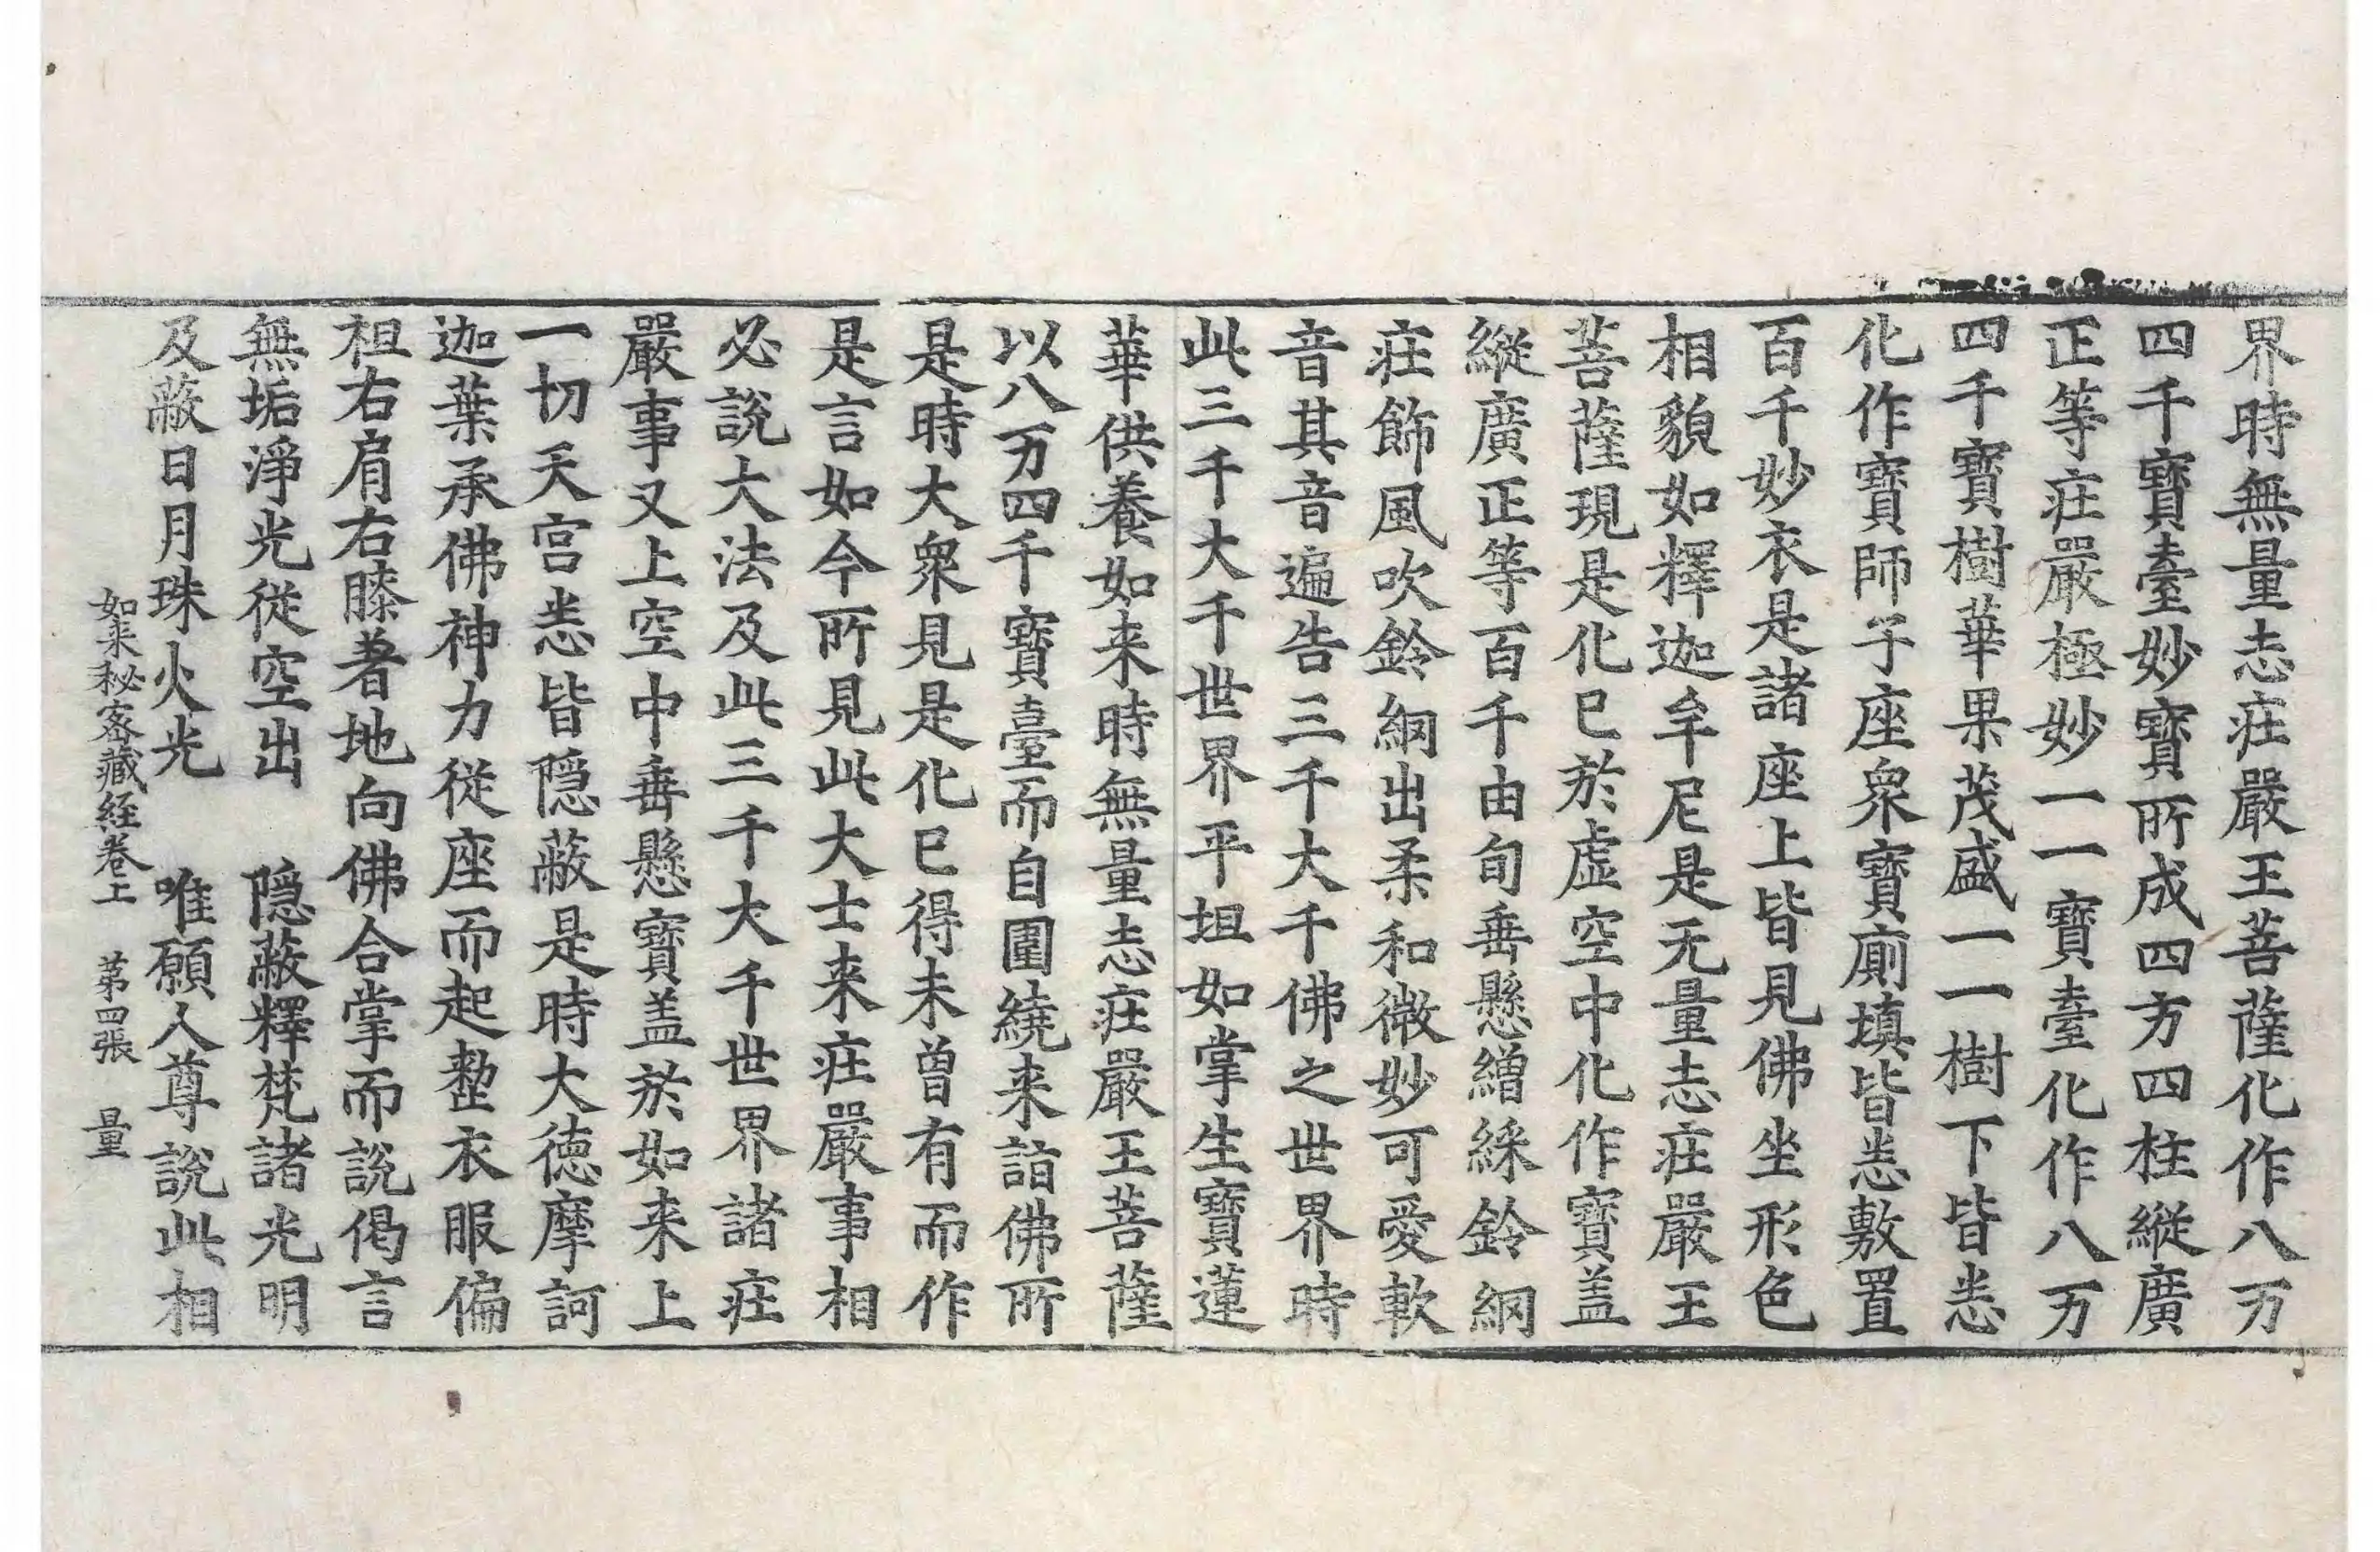 界時無量志莊嚴王菩薩化作八万
四千寶臺妙寶所成四方四柱縱廣
正等莊嚴極妙一一寶臺化作八万
四千寶樹華果茂盛一一樹下皆悉
化作寶師子座衆寶廁填皆悉敷置
百千妙衣是諸座上皆見佛坐形色
相貌如釋迦牟尼是无量志莊嚴王
菩薩現是化已於虛空中化作寶盖
縱廣正等百千由旬垂懸繒綵鈴網
莊飾風吹鈴網出柔和微妙可愛軟
音其音遍告三千大千佛之世界時
此三千大千世界平坦如掌生寶蓮
華供養如来時無量志莊嚴王菩薩
以八万四千寶臺而自圍繞来詣佛所
是時大衆見是化已得未曾有而作
是言如今所見此大士来莊嚴事相
必說大法及此三千大千世界諸莊
嚴事又上空中垂懸寶盖於如来上
一切天宮悉皆隱蔽是時大德摩訶
迦葉承佛神力從座而起整衣服偏
袒右肩右膝著地向佛合掌而說偈言
無垢淨光從空出　隱蔽釋梵諸光明
及蔽日月珠火光　唯願人尊說此相
如来秘密藏経卷上　第四張　量